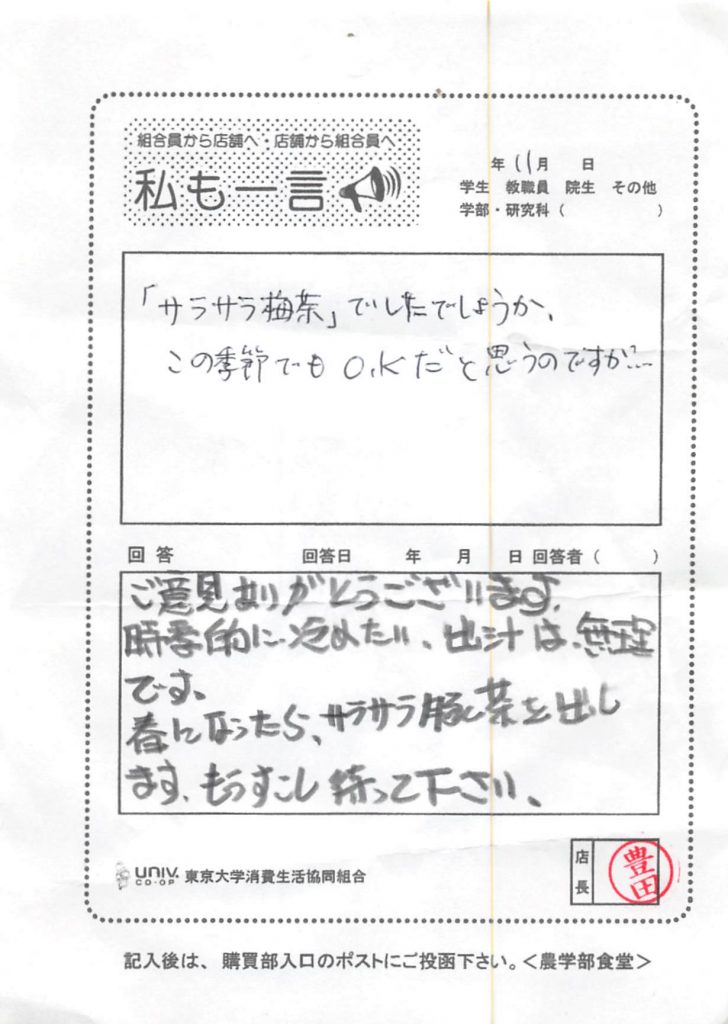 組合員から店舗へ・店舗から組合員へ
私も一言
年 11月 日
学生 教職員 院生 その他
学部・研究科（ ）
「サラサラ梅茶」でしたでしょうか、
この季節でも O.Kだと思うのですが…
回答 回答日 年 月 日 回答者（ ）
ご意見ありがとうございます。
時季的に、冷めたい、出汁は、無理
です。
春になったら、サラサラ豚し茶を出し
ます、もうすこし待って下さい、
UNIV. CO-OP 東京大学消費生活協同組合
店長
豊田
記入後は、購買部入口のポストにご投函下さい。＜農学部食堂＞